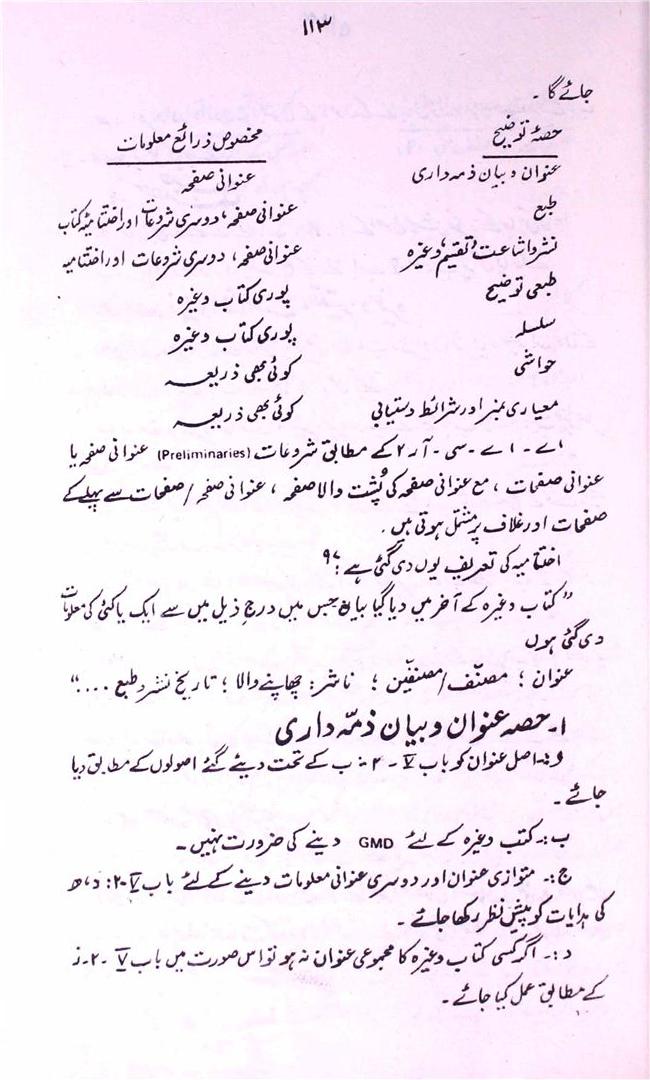 ۱۱۳
جائے گا۔
حصۂ توضیح مخصوص ذرائع معلومات
عنوان و بیان ذمہ داری عنوانی صفحہ
طبع عنوانی صفحہ، دوسری شروعات اور اختتامیہ کتاب
نشر و اشاعت، تقسیم، وغیرہ عنوانی صفحہ، دوسری شروعات اور اختتامیہ
طبعی توضیح پوری کتاب وغیرہ
سلسلہ پوری کتاب وغیرہ
حواشی کوئی بھی ذریعہ
معیاری نمبر اور شرائط دستیابی کوئی بھی ذریعہ
اے۔ اے۔ سی۔ آر ۲ کے مطابق شروعات (Preliminaries) عنوانی صفحہ یا
عنوانی صفحات، مع عنوانی صفحہ کی پُشت والا صفحہ، عنوانی صفحہ/صفحات سے پہلے کے
صفحات اور غلاف پر مشتمل ہوتی ہیں۔
اختتامیہ کی تعریف یوں دی گئی ہے: ۹۷
"کتاب وغیرہ کے آخر میں دیا گیا بیان جس میں درج ذیل میں سے ایک یا کئی کی معلومات
دی گئی ہوں
عنوان؛ مصنّف/مصنّفین؛ ناشر: چھاپنے والا؛ تاریخ نشر و طبع ...."
۱۔ حصہ عنوان و بیان ذمّہ داری
اصل عنوان کو باب V۔ ۲۔ ب کے تحت دیئے گئے اصولوں کے مطابق دیا
جائے۔
ب:۔ کتب وغیرہ کے لئے GMD دینے کی ضرورت نہیں۔
ج:۔ متوازی عنوان اور دوسری عنوانی معلومات دینے کے لئے باب V۔۲: د، ھ
کی ہدایات کو پیش نظر رکھا جائے۔
د:۔ اگر کسی کتاب وغیرہ کا مجموعی عنوان نہ ہو تو اس صورت میں باب V۔۲۔ ز
کے مطابق عمل کیا جائے۔